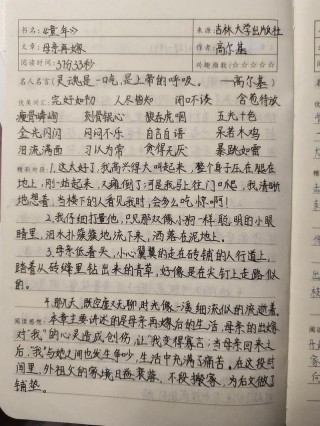 书名:《童年》 来源:吉林大学出版社
文章:母亲再嫁 作者:高尔基
阅读时间:37分33秒 兴趣指数:☆☆☆☆☆
名人名言:灵魂是一口气,是上帝的呼吸。——高尔基
优美词汇:完好如初 人尽皆知 闭口不谈 含苞待放
瘦骨嶙峋 刻骨铭心 狼吞虎咽 五光十色
金光闪闪 闷闷不乐 自言自语 呆若木鸡
泪流满面 习以为常 贪得无厌 暴跌如雷
精彩句段:1.这太好了,我高兴得大叫起来,整个身子压在
地上,刚一站起来,又
地想着,当楼下的人看见我时,会多么吃惊啊!
2.我仔细打量他,只见那双像小狗一样聪明的小眼
睛里,泪水扑簌簌地流下来,洒落在泥地上。
3.母亲低着头,小心翼翼的走在砖铺的人行道上,
踏着从砖缝里钻出来的青草,好像是在尖钉上走路似
的。
4.那几天,既空虚又无聊,时光像一溪细流似的流逝着。
阅读感想:本章主要讲述的是母亲再嫁后的生活,母亲的出嫁
对“我”的心灵造成创伤,让“我变得寡言;当母亲回来之
后,“我”与她之间也发生争吵,生活中充满了痛苦。在这段时
间里,外祖父的家境日益衰落,不段搬家,为后文做了
铺垫。